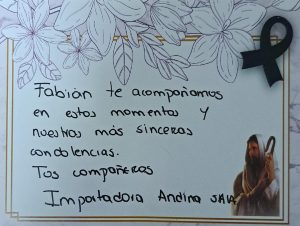 Fabián te acompañamos
en estos momentos y
nuestras más sinceras
condolencias.
Tus compañeras
Importadora Andina